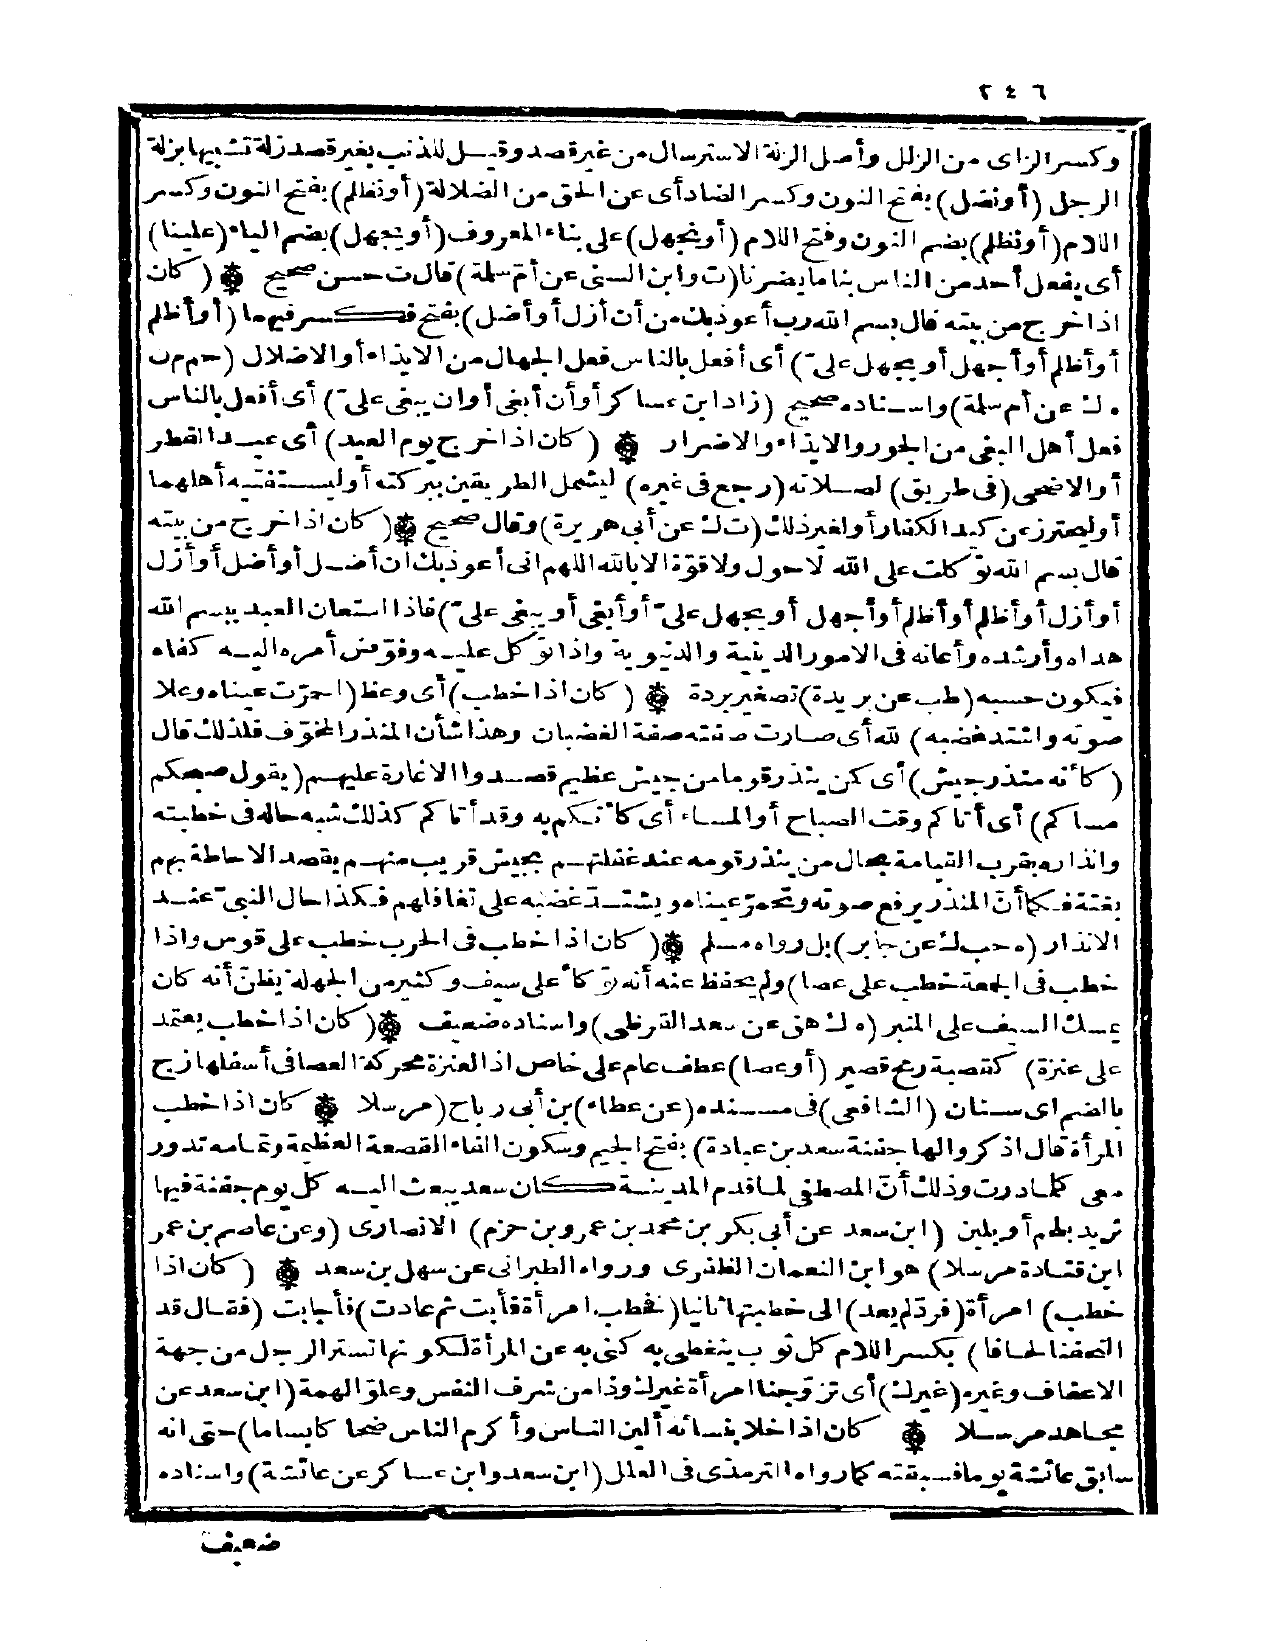 ٢٤٦
وكسر الزاى من الزلل وأصل الزلة الاسترسال من غير قصد وقيل للذنب بغير قصد زلة تشبيها بزلة
الرجل (أو نضل) بفتح النون وكسر الضاد أى عن الحق من الضلالة (أو نظلم) بفتح النون وكسر
اللام (أو نظلم) بضم النون وفتح اللام (أو نجهل) على بناء المعروف (أو يجهل) بضم الياء (علينا)
أى يفعل أحد من الناس بنا ما يضرنا (ت وابن السنى عن أم سلمة) قال ت حسن صحيح ۞ (كان
اذا خرج من بيته قال بسم الله رب أعوذ بك من أن أزل أو أضل) بفتح فكسر فيهما (أو أظلم
أو أظلم أو أجهل أو يجهل على) أى أفعل بالناس فعل الجهال من الايذاء أو الاضلال (حم ن
ه ك عن أم سلمة) واسناده صحيح (زاد ابن عساكر أو أن أبغى أو ان يبغى على) أى أفعل بالناس
فعل أهل البغى من الجور والايذاء والاضرار ۞ (كان اذا خرج يوم العيد) أى عيد الفطر
أو الاضحى (فى طريق) لصلاته (رجع فى غيره) ليشمل الطريقين ببركته أو ليستفتيه أهلهما
أو ليحترز عن كيد الكفار أو لغير ذلك (ت ك عن أبى هريرة) وقال صحيح ۞ (كان اذا خرج من بيته
قال بسم الله توكلت على الله لا حول ولا قوة الا بالله اللهم انى أعوذ بك ان أضل أو أضل أو أزل
أو أزل أو أظلم أو أظلم أو أجهل أو يجهل على أو أبغى أو يبغى على) فاذا استعان العبد ببسم الله
هداه وأرشده وأعانه فى الامور الدينية والدنيوية واذا توكل عليه وفوض أمره اليه كفاه
فيكون حسبه (طب عن بريدة) تصغير بردة ۞ (كان اذا خطب) أى وعظ (احمرت عيناه وعلا
صوته واشتد غضبه) لله أى صارت صفته صفة الغضبان وهذا شأن المنذر المخوف فلذلك قال
(كأنه منذر جيش) أى كمن ينذر قوما من جيش عظيم قصدوا الاغارة عليهم (يقول صبحكم
مساكم) أى أتاكم وقت الصباح أو المساء أى كأنكم به وقد أتاكم كذلك شبه حاله فى خطبته
وانذاره بقرب القيامة بحال من ينذر قومه عند غفلتهم بجيش قريب منهم يقصد الاحاطة بهم
بغتة فكما أن المنذر يرفع صوته وتحمر عيناه ويشتد غضبه على تغافلهم فكذا حال النبى عند
الانذار (ه حب ك عن جابر) بل رواه مسلم ۞ (كان اذا خطب فى الحرب خطب على قوس واذا
خطب فى الجمعة خطب على عصا) ولم يحفظ عنه أنه توكأ على سيف وكثير من الجهلة يظن أنه كان
يمسك السيف على المنبر (ه ك هق عن سعد القرظى) واسناده ضعيف ۞ (كان اذا خطب يعتمد
على عنزة) كقصبة رمح قصير (أو عصا) عطف عام على خاص اذ العنزة محركة العصا فى أسفلها زج
بالضم اى سنان (الشافعى) فى مسنده (عن عطاء) بن أبى رباح (مرسلا ۞ كان اذا خطب
المرأة قال اذكروا لها جفنة سعد بن عبادة) بفتح الجيم وسكون الفاء القصعة العظيمة وتمامه تدور
معى كلما درت وذلك أن المصطفى لما قدم المدينة كان سعد يبعث اليه كل يوم جفنة فيها
ثريد بلحم أو بلبن (ابن سعد عن أبى بكر بن محمد بن عمرو بن حزم) الانصارى (وعن عاصم بن عمر
ابن قتادة مرسلا) هو ابن النعمان الظفرى ورواه الطبرانى عن سهل بن سعد ۞ (كان اذا
خطب) امرأة (فرد لم يعد) الى خطبتها ثانيا (فخطب امرأة فأبت ثم عادت) فأجابت (فقال قد
التحفنا لحافا) بكسر اللام كل ثوب يتغطى به كنى به عن المرأة لكونها تستر الرجل من جهة
الاعفاف وغيره (غيرك) أى تزوجنا امرأة غيرك وذا من شرف النفس وعلو الهمة (ابن سعد عن
مجاهد مرسلا ۞ كان اذا خلا بنسائه ألين الناس وأكرم الناس ضحاكا بساما) حتى انه
سابق عائشة يوما فسبقته كما رواه الترمذى فى العلل (ابن سعد وابن عساكر عن عائشة) واسناده
ضعيف